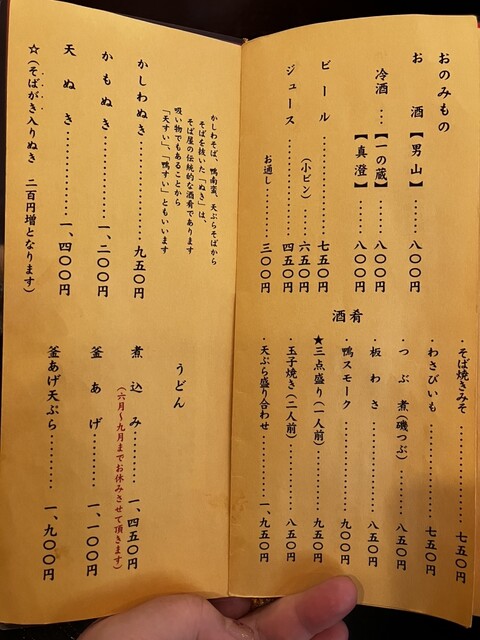 おのみもの
お酒【男山】………八〇〇円
冷酒…【一の蔵】………八〇〇円
【真澄】………八〇〇円
ビール………七五〇円
(小ビン)………六五〇円
ジュース………四五〇円
お通し………三〇〇円
酒肴
・そば焼きみそ………七五〇円
・わさびいも………七五〇円
・つぶ煮(磯つぶ)………八五〇円
・板わさ………八五〇円
・鴨スモーク………九〇〇円
★三点盛り(一人前)………九五〇円
・玉子焼き(二人前)………八五〇円
・天ぷら盛り合わせ………一、九五〇円
かしわそば、鴨南蛮、天ぷらそばから
そばを抜いた「ぬき」は、
そば屋の伝統的な酒肴であります
吸い物でもあることから
「天すい」、「鴨すい」ともいいます
かしわぬき………九五〇円
かもぬき………一、二〇〇円
天ぬき………一、四〇〇円
☆(そばがき入りぬき 二百円増となります)
うどん
煮込み………一、四五〇円
(六月〜九月までお休みさせて頂きます)
釜あげ………一、一〇〇円
釜あげ天ぷら………一、九〇〇円